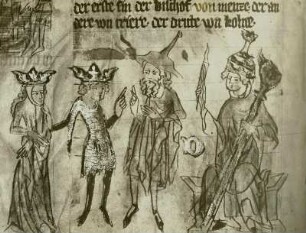 der erste sin der bischof von menze der an
dere von trire der dritte von kolne